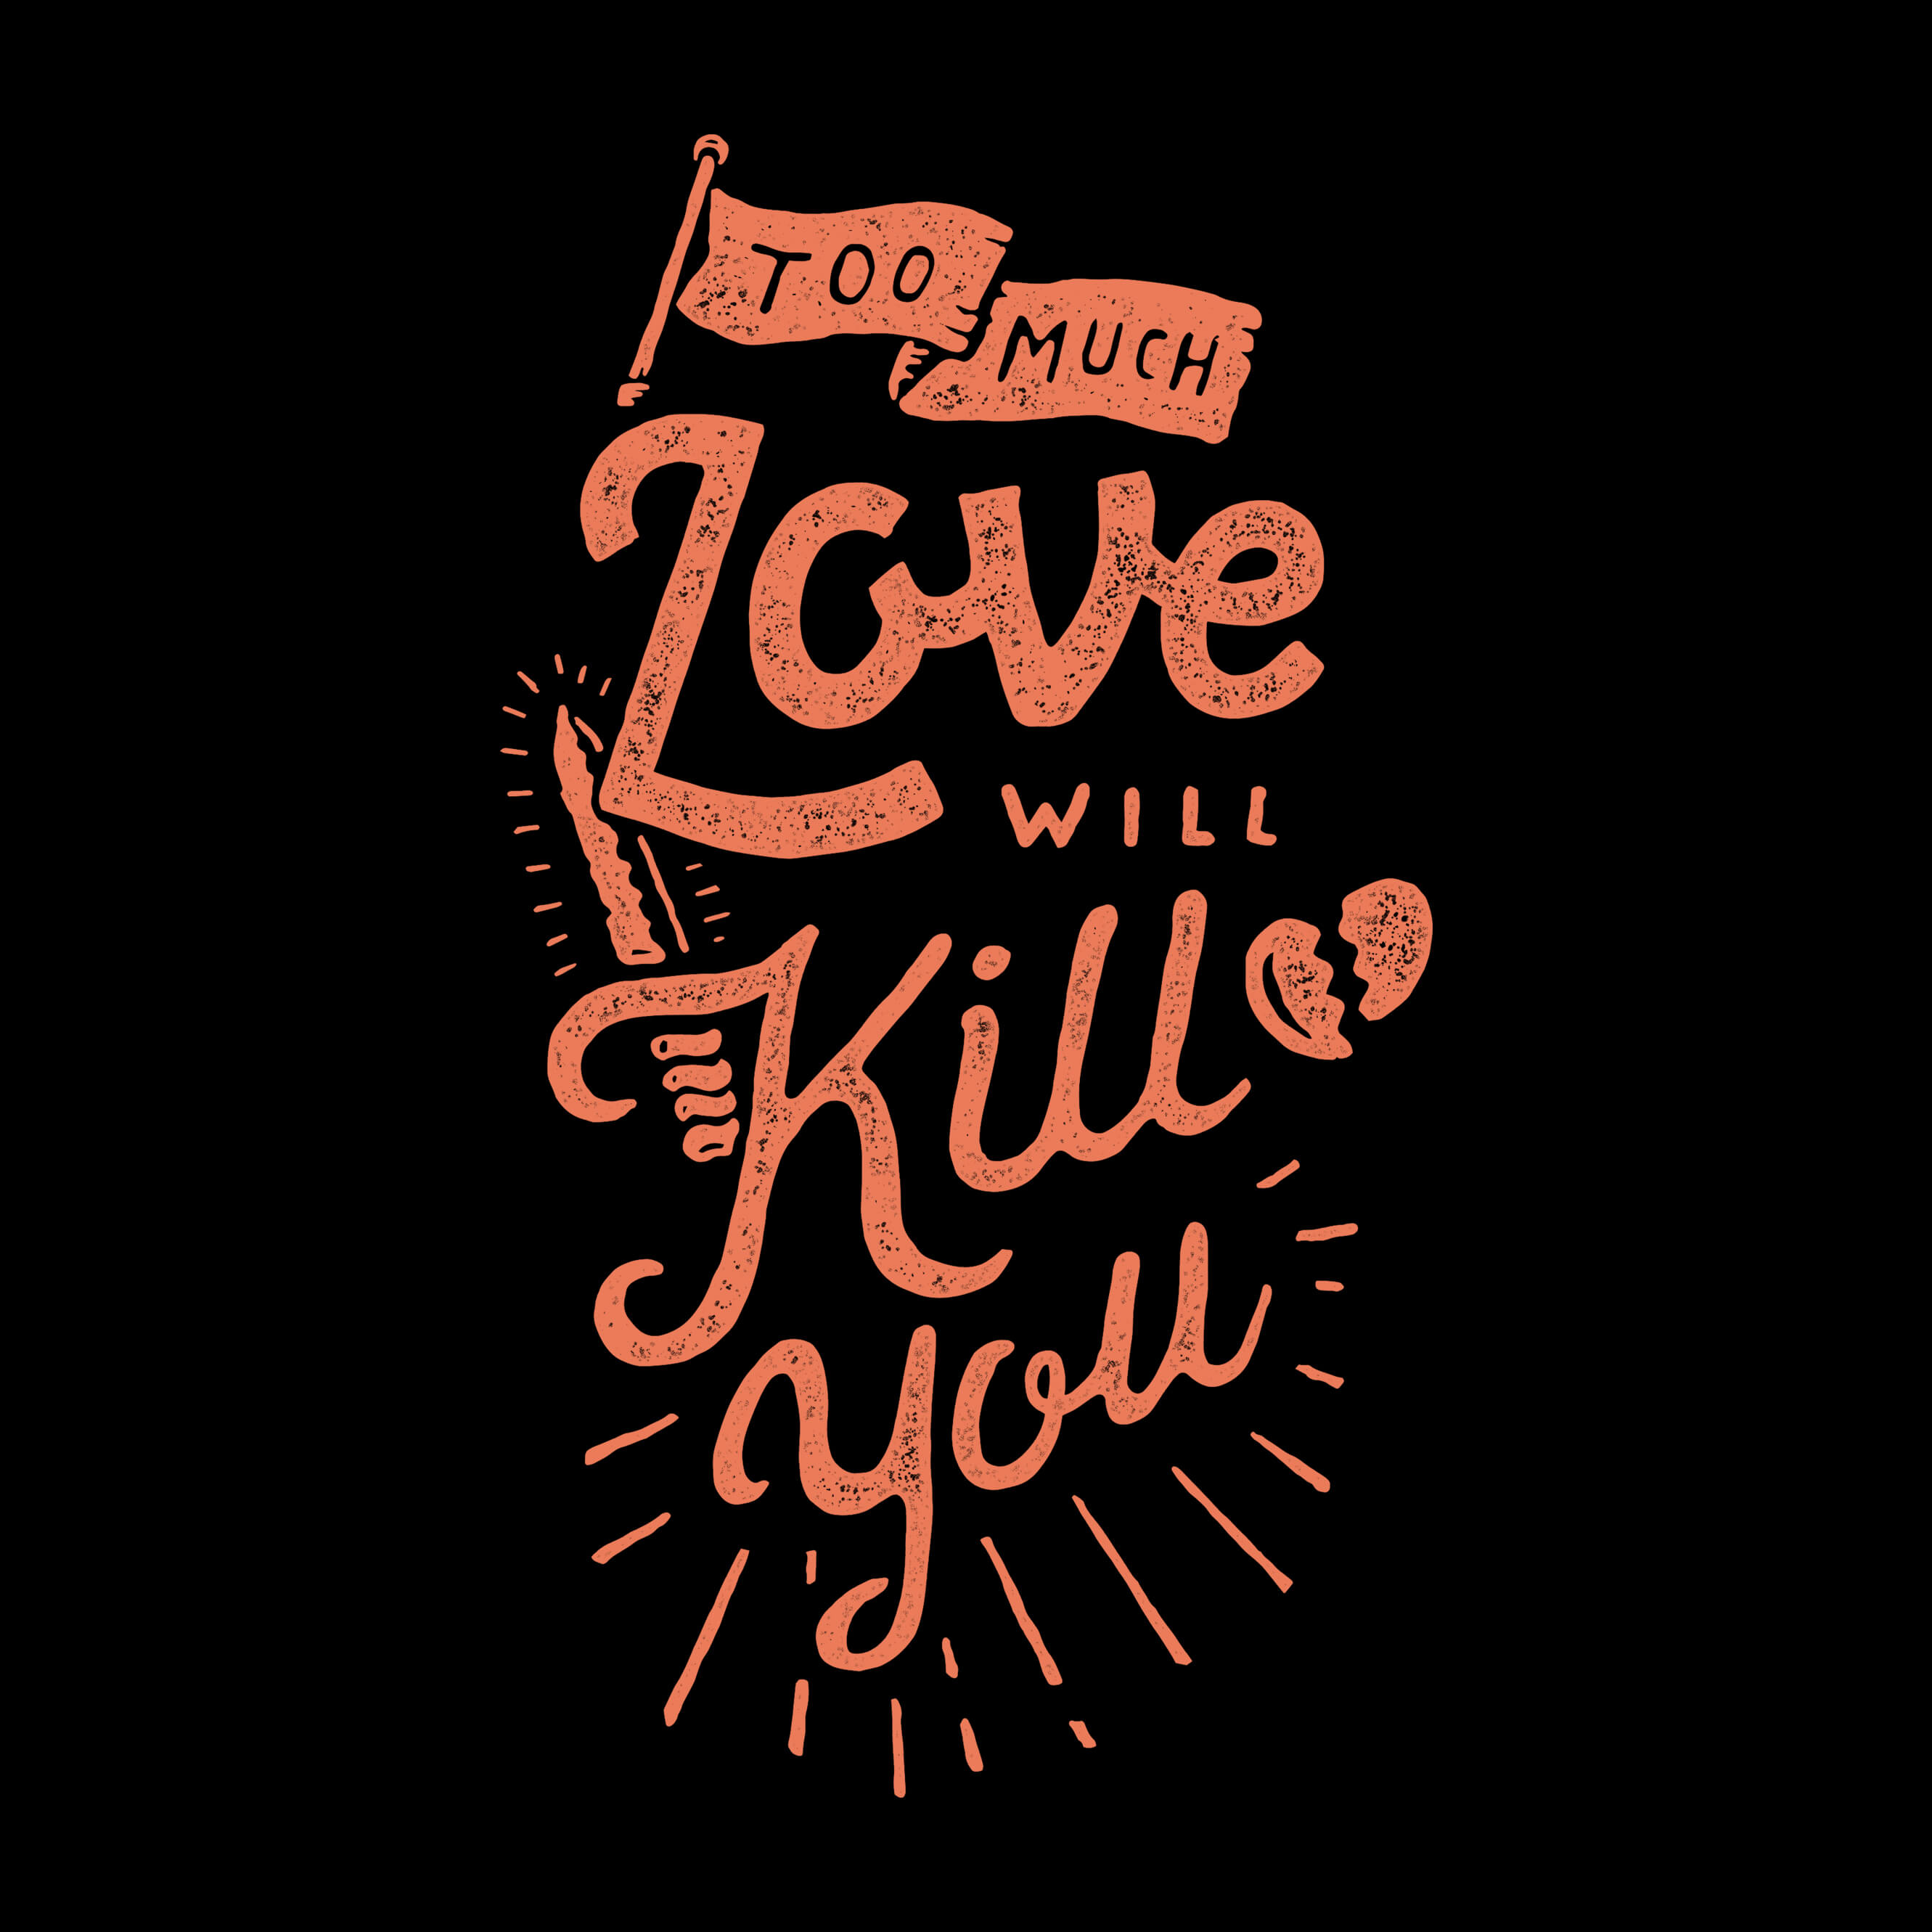 TOO
MUCH
Love
WILL
Kill
you